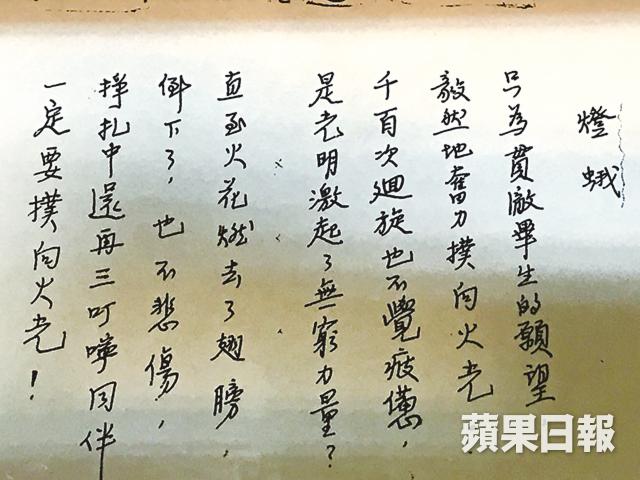 燈蛾
只為貫徹畢生的願望
毅然地奮力撲向火光
千百次廻旋也不覺疲憊，
是光明激起了無窮力量？
直至火花燃去了翅膀，
倒下了，也不悲傷，
掙扎中還再三叮嚀同伴
一定要撲向火光！
蘋果日報